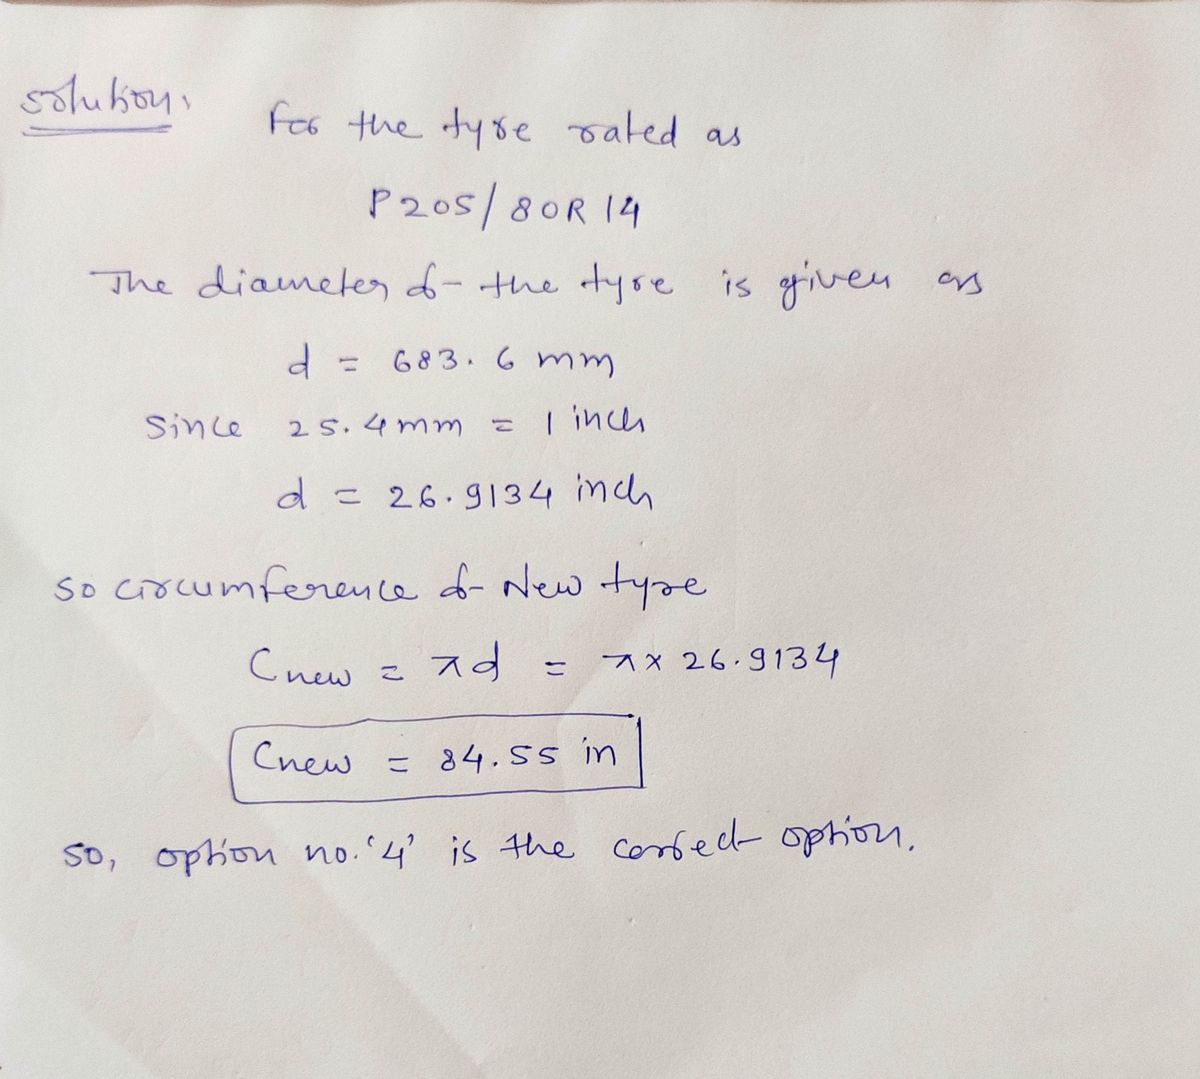 solution:
For the tyre rated as
P205/80R14
The diameter of the tyre is given as
d = 683.6 mm
Since 25.4mm = 1 inch
d = 26.9134 inch
so circumference of New tyre
Cnew = πd = π × 26.9134
Cnew = 84.55 in
so, option no. '4' is the correct option.